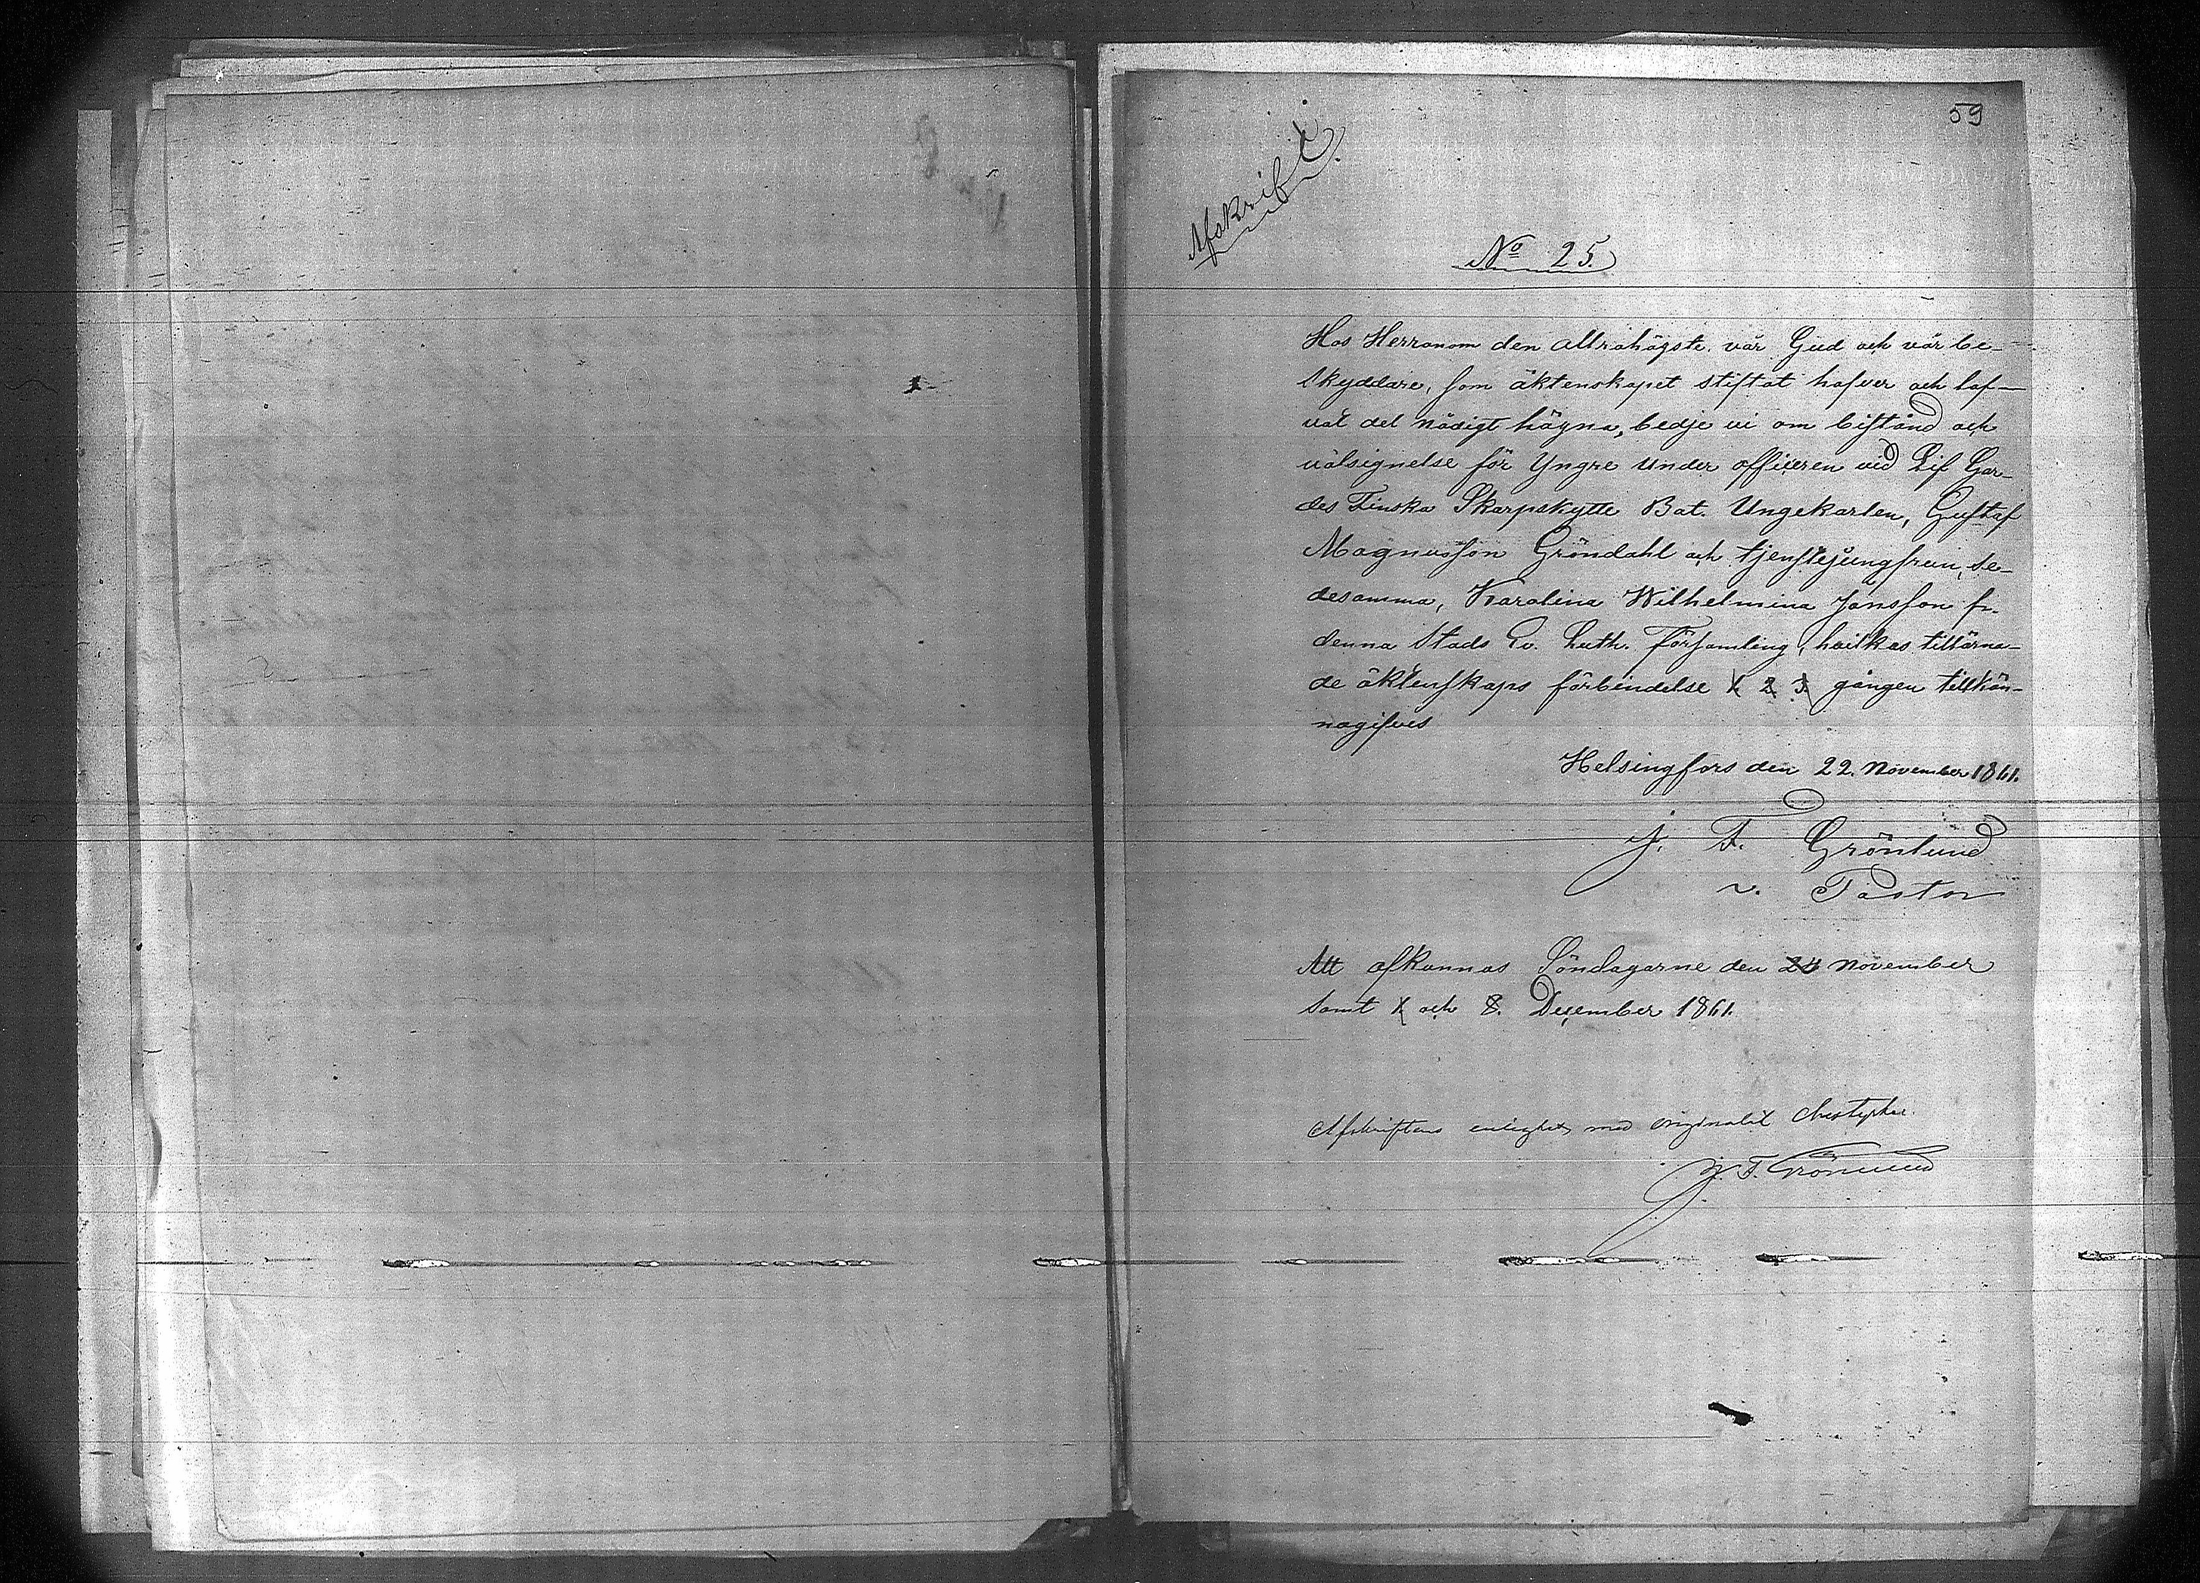 59
Afskrift.
No 25.
Hos Herranom den allrahögste vår Gud och vår be-
skyddare, som äktenskapet stiftat hafver och laf-
vat det nådigt hägna, bedje vi om bistånd och
välsignelse för Yngre Under officeren vid Lif Gar-
des Finska Skarpskytte Bat. Ungekarlen, Gustaf
Magnusson Gröndahl och tjenstejungfrun, de-
desamma, Karolina Wilhelmina Jansson fr.
denna Stads Ev. Luth. Församling, hvilkas tillärna-
de äktenskaps förbindelse 1 2 3 gången tillkän-
nagifves
Helsingfors den 22. November 1861.
J. F. Grönlund
v. Pastor
Att afkunnas Söndagarne den 24 November
samt 1 och 8. December 1861.
Afskriftens enlighet med originalet
J. F. Grönlund